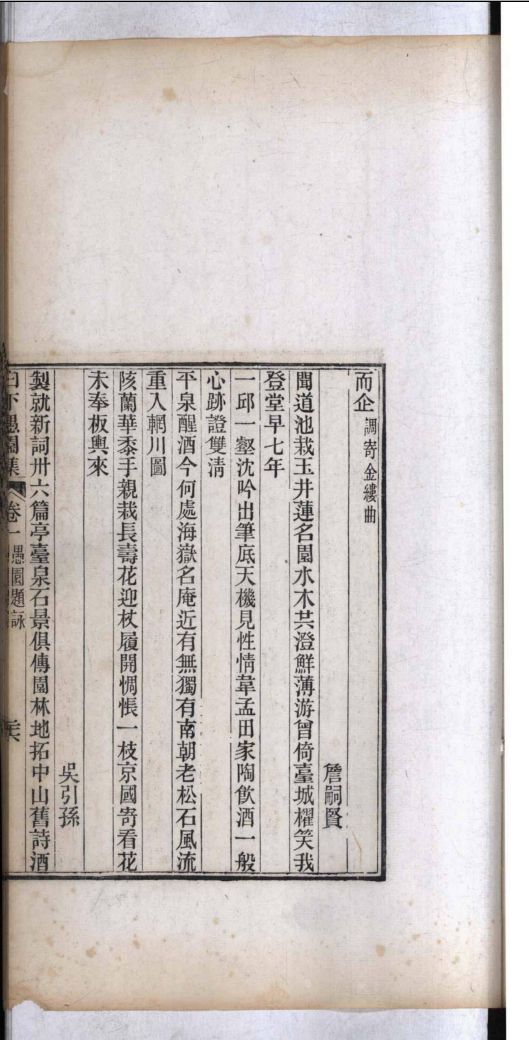 而企 調寄金縷曲
詹嗣賢
聞道池栽玉井蓮名園水木共澄鮮薄游曾倚臺城櫂笑我
登堂早七年
一邱一壑沈吟出筆底天機見性情韋孟田家陶飲酒一般
心跡證雙清
平泉醒酒今何處海嶽名庵近有無獨有南朝老松石風流
重入輞川圖
陔蘭華黍手親栽長壽花迎杖履開惆悵一枝京國寄看花
未奉板輿來
吳引孫
製就新詞卅六篇亭臺泉石景俱傳園林地拓中山舊詩酒
白下愚園集 卷一 愚園題詠